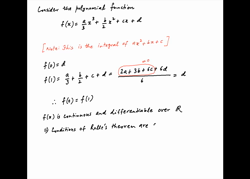 Consider the polynomial function
f(x) = a/3 x³ + b/2 x² + cx + d
[Note: This is the integral of ax²+bx+c]
f(0) = d
f(1) = a/3 + b/2 + c + d = (2a + 3b + 6c + 6d)/6 = d
∴ f(0) = f(1)
f(x) is continuous and differentiable over R
⇒ Conditions of Rolle's theorem are